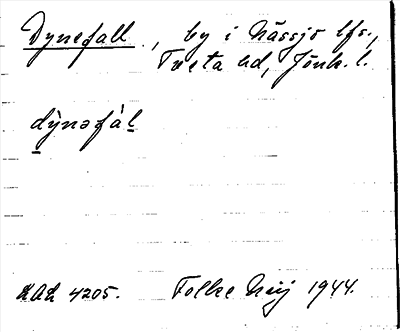 Dynefall, by i Nässjö lfs.,
Tveta hd, Jönk. l.
dỳnəfàl
LAL 4205. Folke Naij 1944.